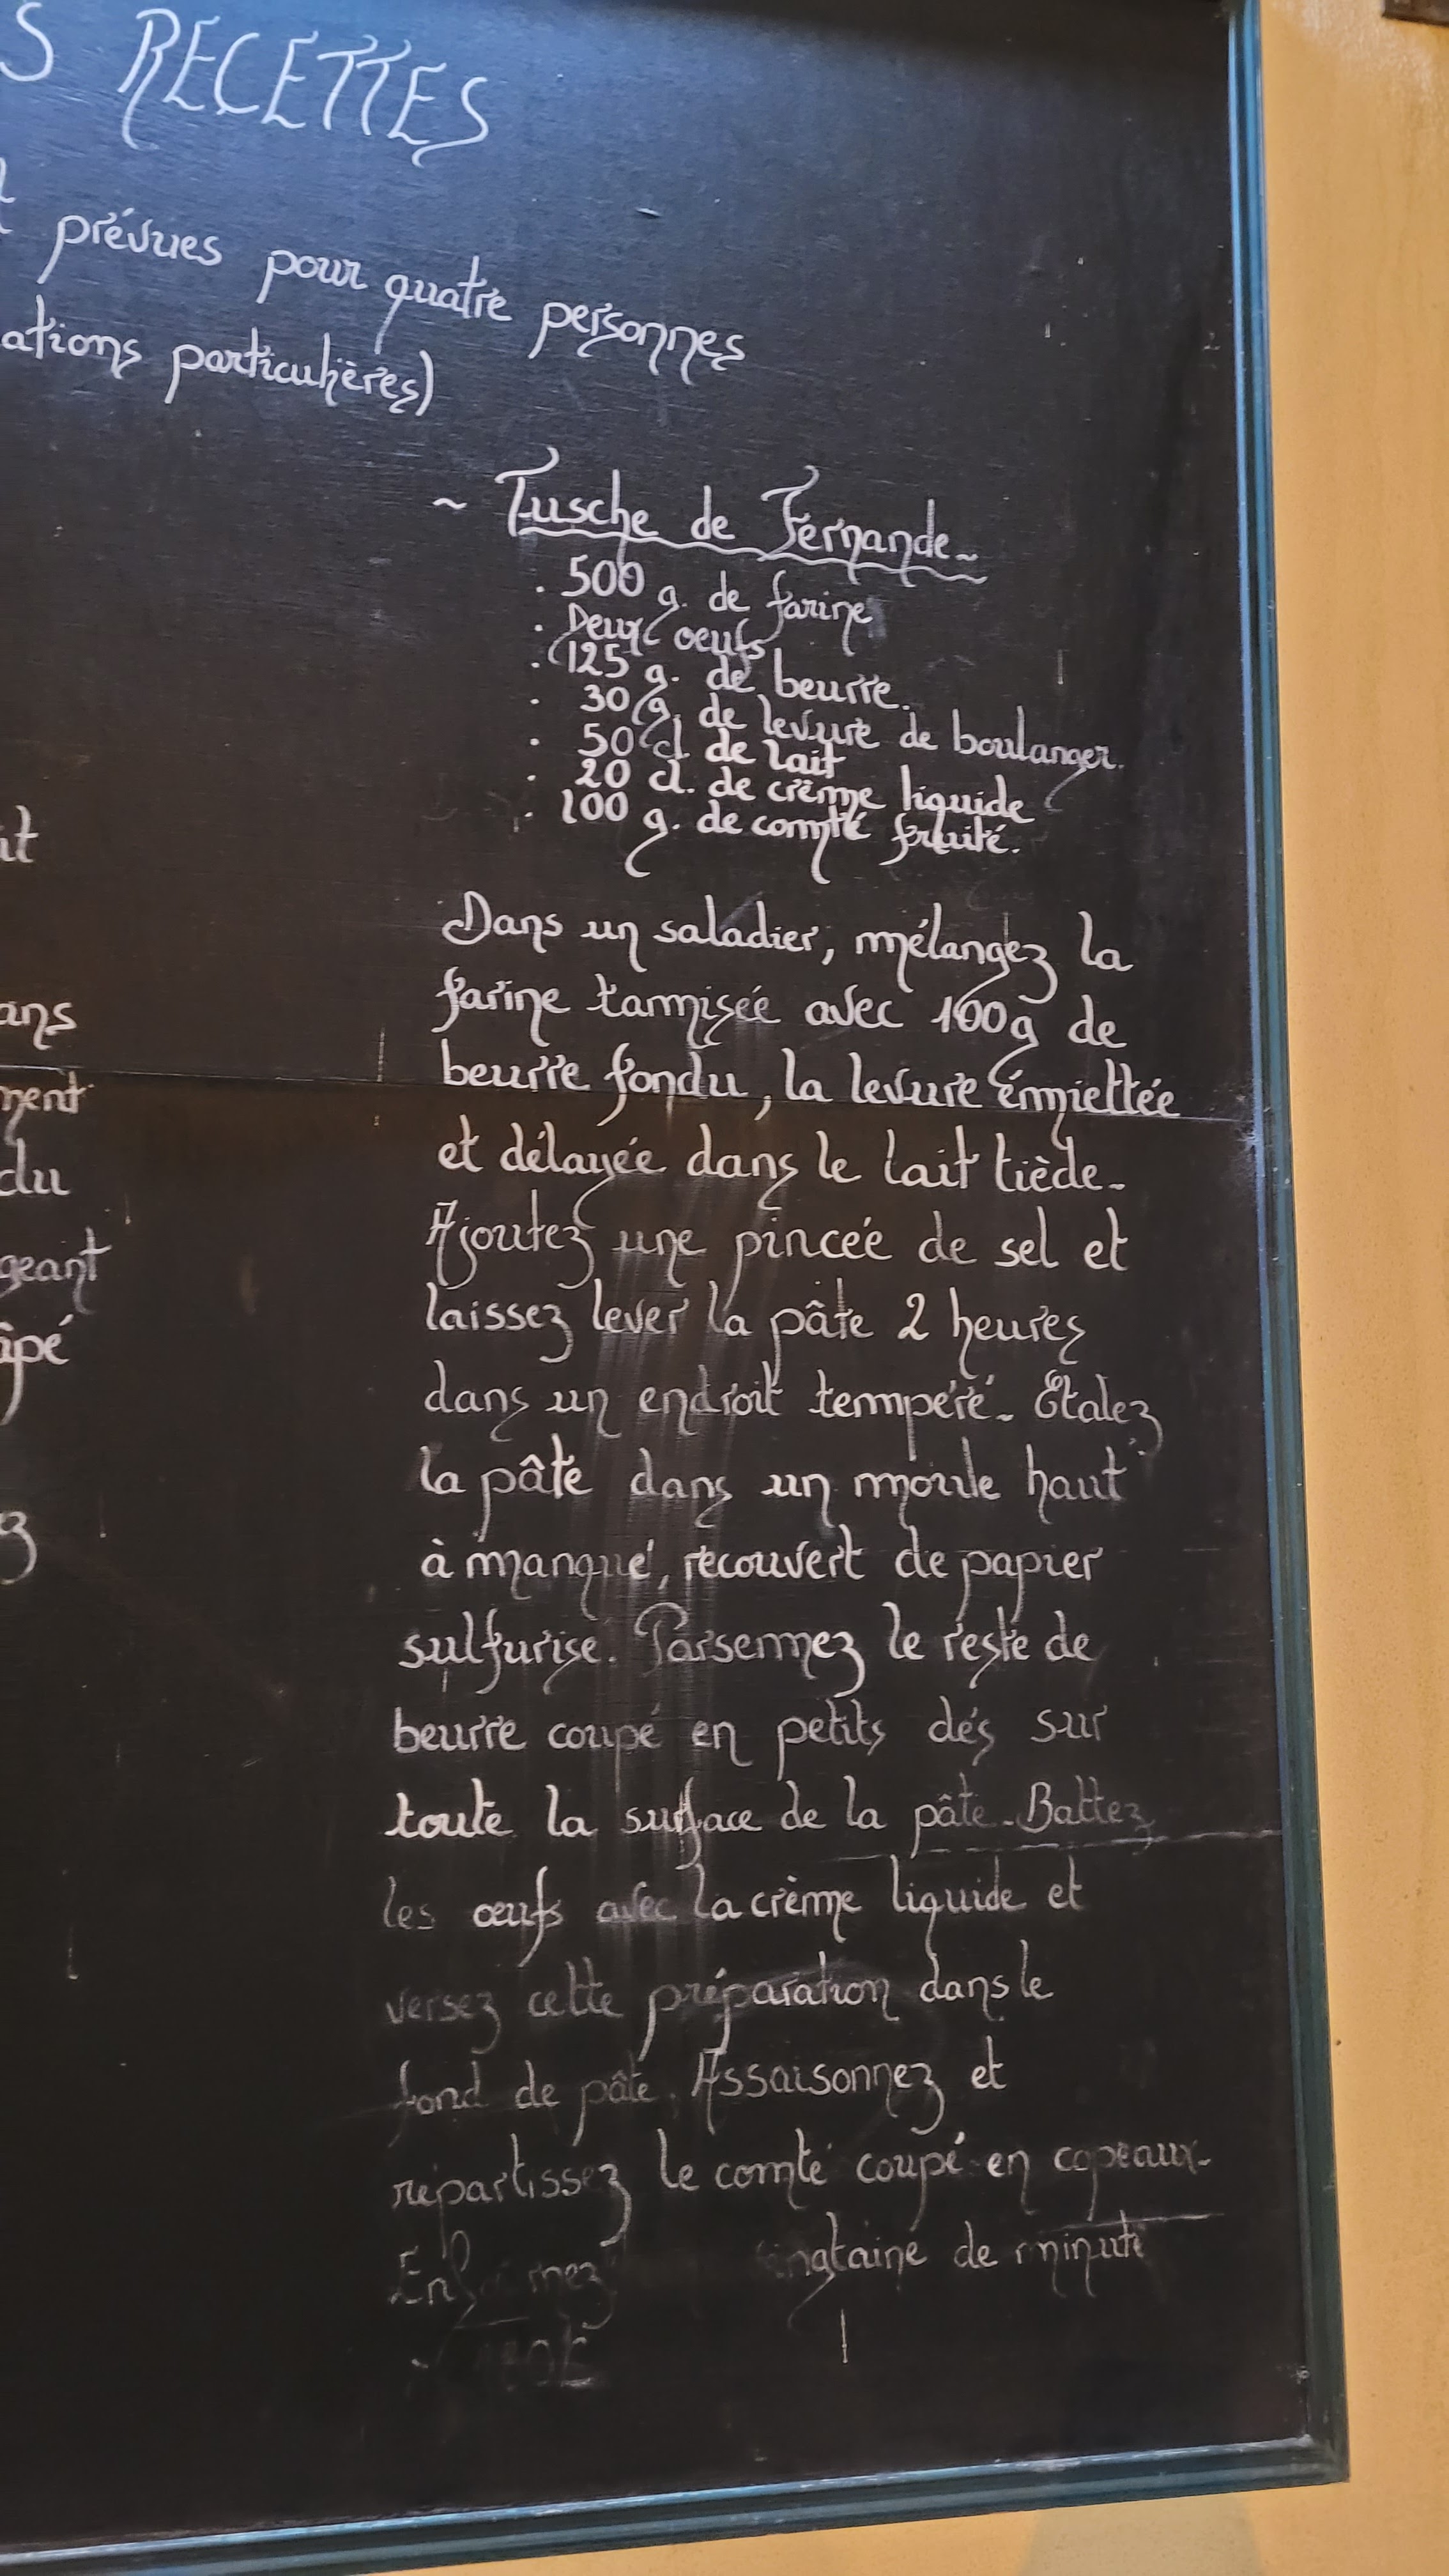 S RECETTES
prévues pour quatre personnes
ations particulières)
~ Tusche de Fernande -
. 500 g. de farine
. Deux oeufs
. 125 g. de beurre.
. 30 g. de levure de boulanger.
. 50 cl de lait
. 20 cl. de crème liquide
. 100 g. de comté fruité.
it
ans
ment
du
geant
ipé
z
Dans un saladier, mélangez la
farine tammisée avec 100g de
beurre fondu, la levure émiettée
et délayée dans le lait tiède.
Ajoutez une pincée de sel et
laissez lever la pâte 2 heures
dans un endroit tempéré. Etalez
la pâte dans un moule haut
à manqué, recouvert de papier
sulfurisé. Parsemmez le reste de
beurre coupé en petits dés sur
toute la surface de la pâte. Battez
les œufs avec la crème liquide et
versez cette préparation dans le
fond de pâte. Assaisonnez et
répartissez le comté coupé en copeaux.
ngtaine de minute